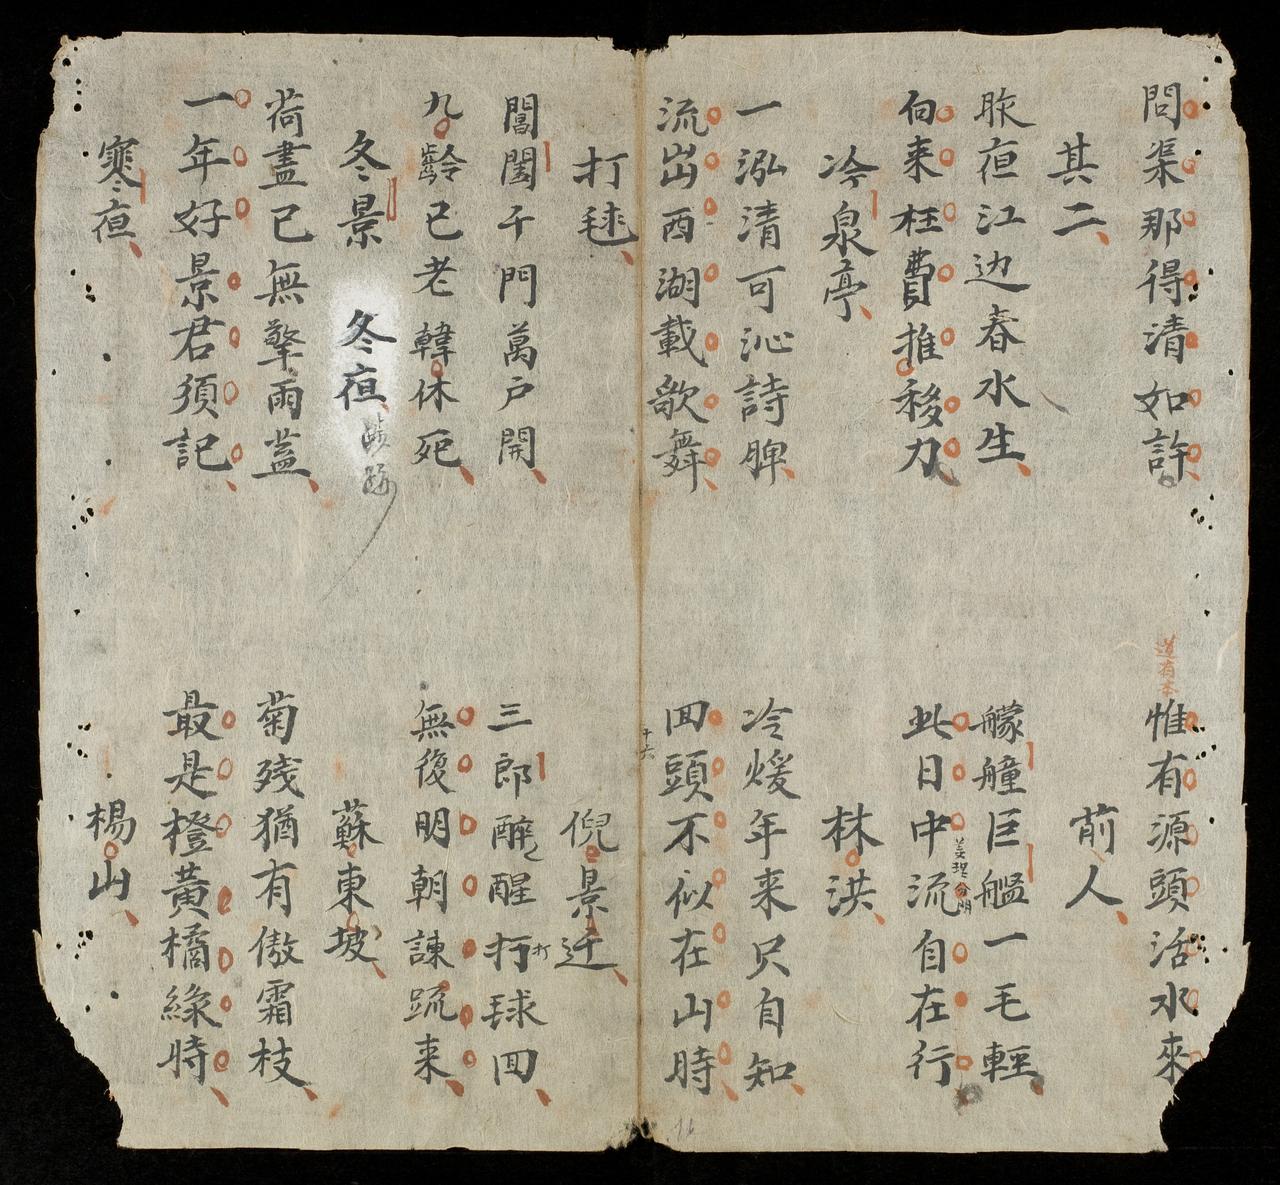 問渠那得清如許
道有本
惟有源頭活水來
其二
前人
昨夜江边春水生
艨艟巨艦一毛輕
向来枉費推移力
此日中流自在行
冷泉亭
林洪
一泓清可沁詩脾
冷煖年来只自知
流出西湖載歌舞
囬頭不似在山時
十六
打毬
倪景迁
閶闔千門萬户開
三郎醉醒打球囬
打
九齡已老韓休死
無復明朝諫䟽来
冬景
冬夜
蘇東坡
荷盡已無擎雨蓋
菊残猶有傲霜枝
一年好景君須記
最是橙黄橘緑時
寒夜
楊山
16